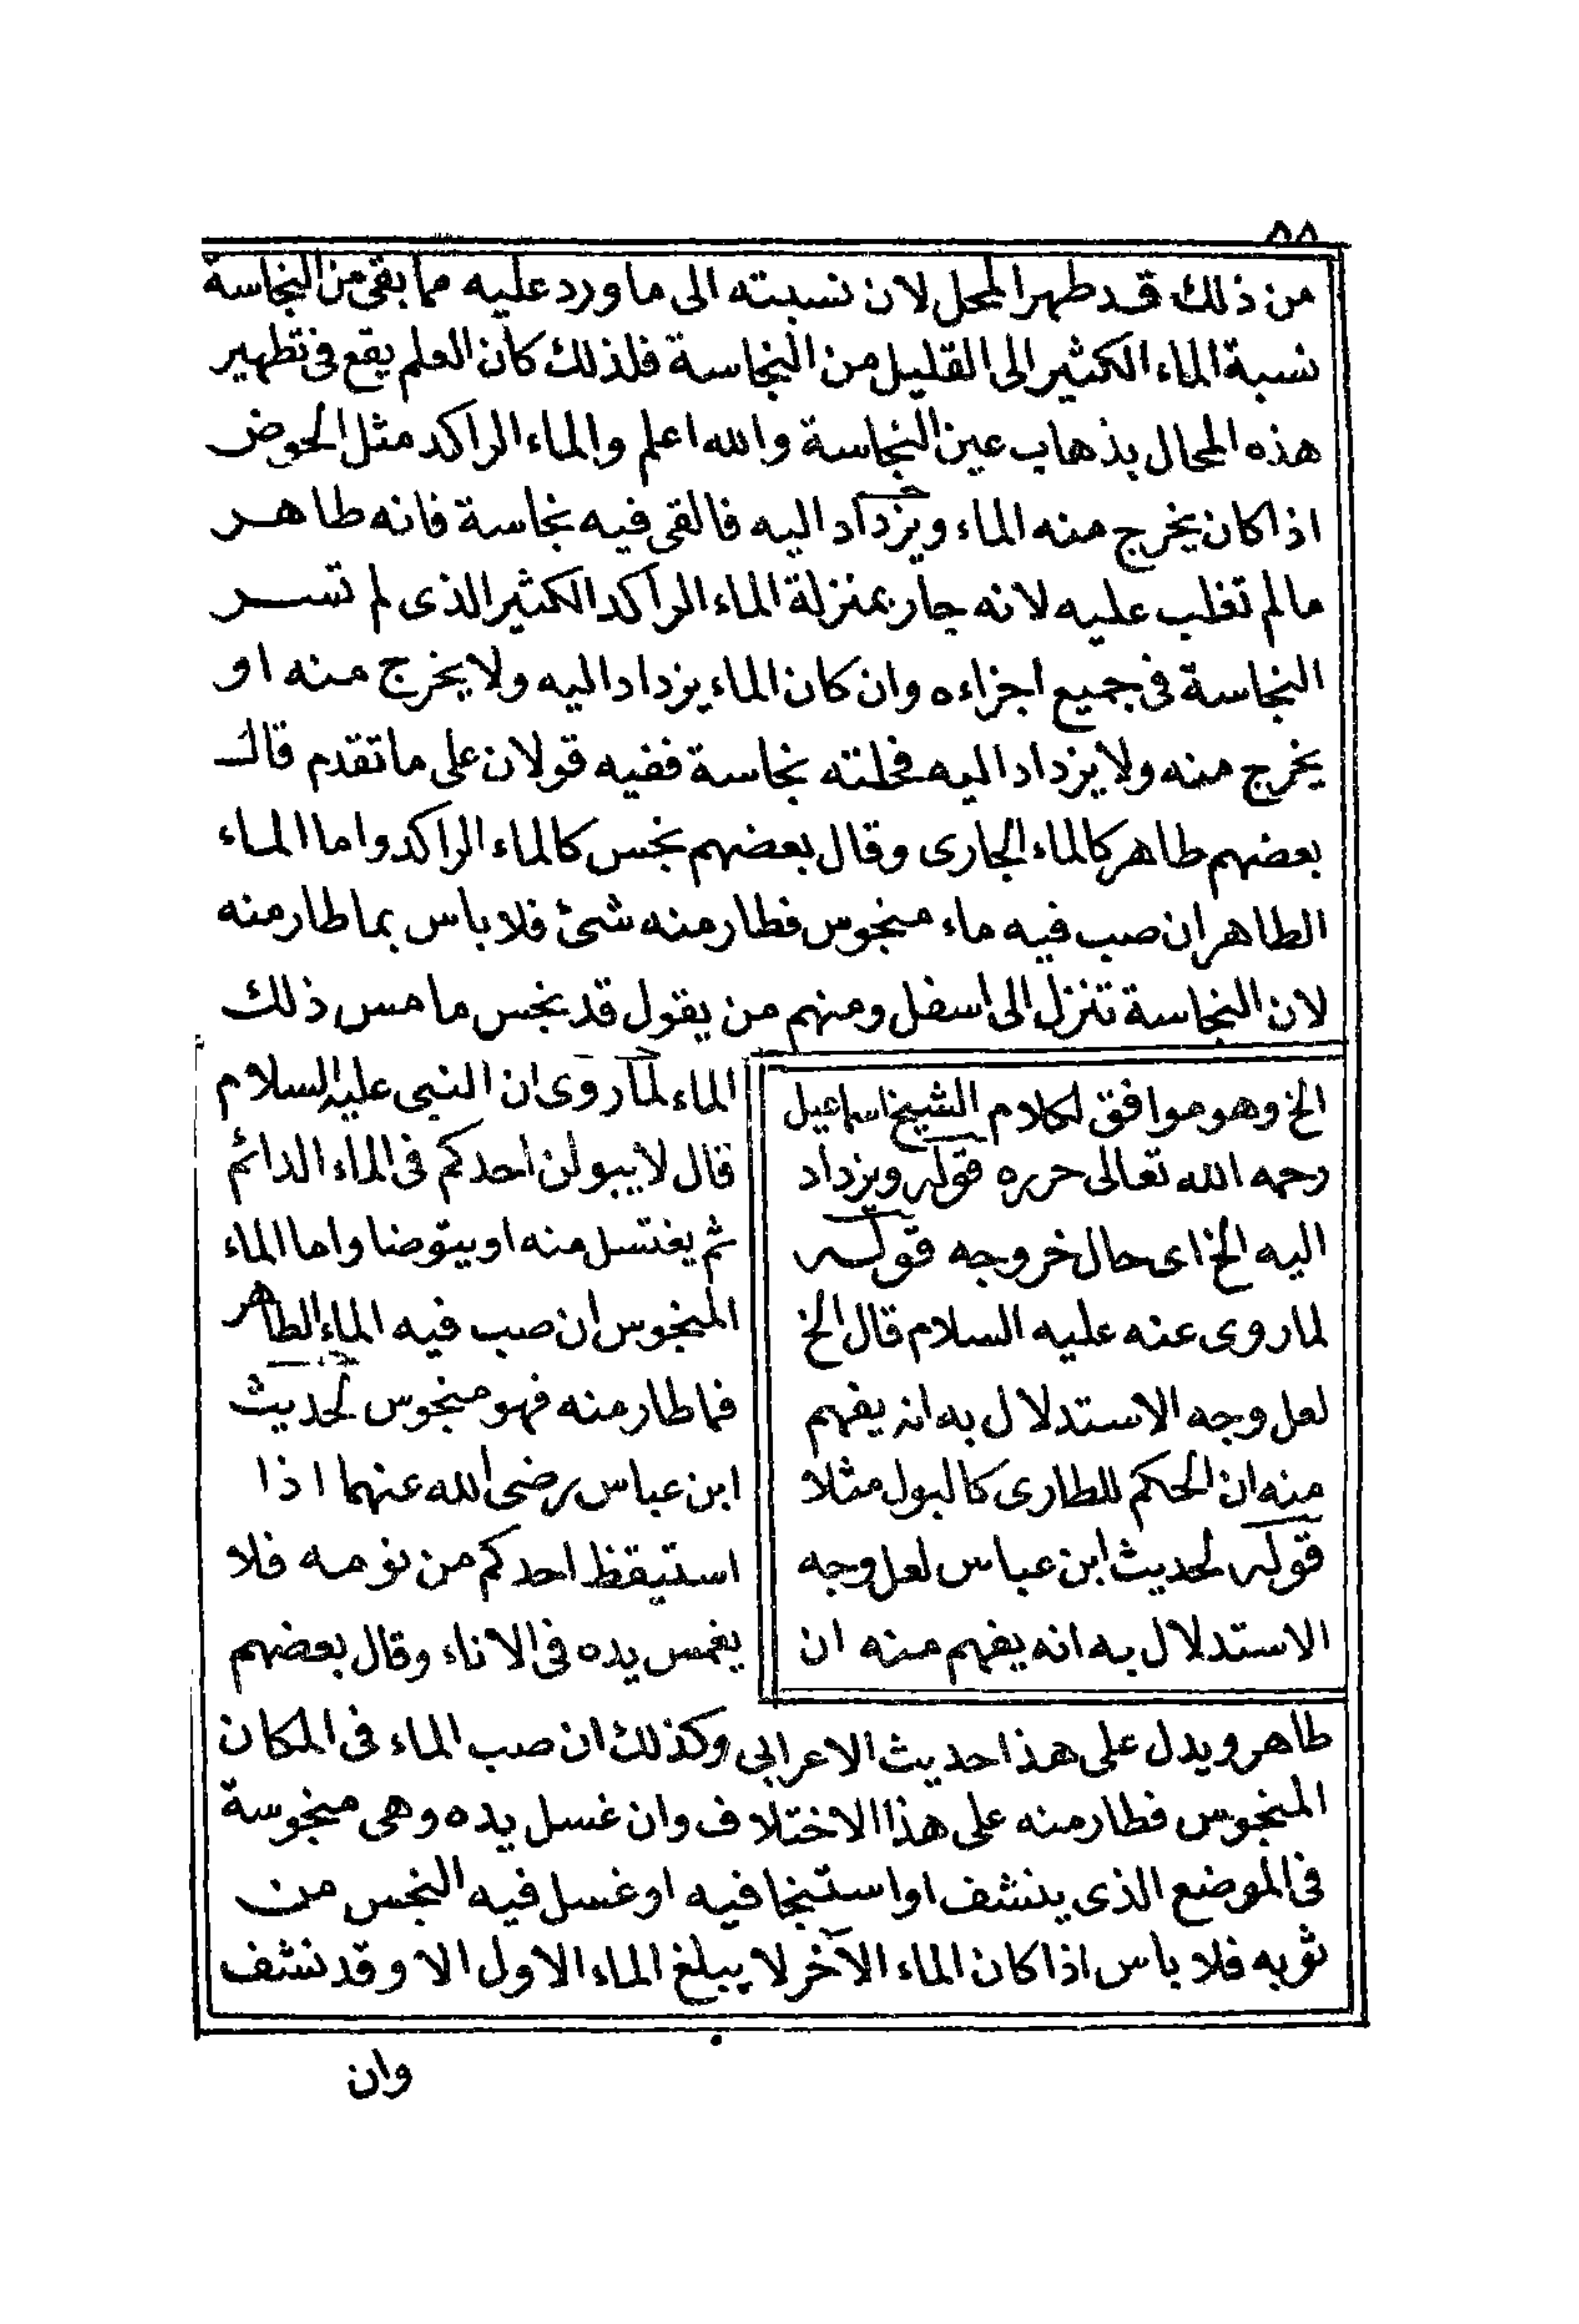 ٥٨
من ذلك قد طهر المحل لان نسبته الى ما ورد عليه مما بقى من النجاسة
نسبة الماء الكثير الى القليل من النجاسة فلذلك كان العلم يقع فى تطهير
هذه المحال بذهاب عين النجاسة والله اعلم والماء الراكد مثل الحوض
اذا كان يخرج منه الماء ويزداد اليه فالقى فيه نجاسة فانه طاهر
ما لم تغلب عليه لانه جار بمنزلة الماء الراكد الكثير الذى لم تسر
النجاسة فى جميع اجزاءه وان كان الماء يزداد اليه ولا يخرج منه او
يخرج منه ولا يزداد اليه فحلته نجاسة ففيه قولان على ما تقدم قال
بعضهم طاهر كالماء الجارى وقال بعضهم نجس كالماء الراكد واما الماء
الطاهر ان صب فيه ماء منجوس فطار منه شئ فلا باس بما طار منه
لان النجاسة تنزل الى اسفل ومنهم من يقول قد نجس ما مس ذلك
الماء لما روى ان النبى عليه السلام
قال لا يبولن احدكم فى الماء الدائم
ثم يغتسل منه او يتوضا واما الماء
المنجوس ان صب فيه الماء الطاهر
فما طار منه فهو منجوس لحديث
ابن عباس رضى الله عنهما اذا
استيقظ احدكم من نومه فلا
يغمس يده فى الاناء وقال بعضهم
طاهر ويدل على هذا حديث الاعرابى وكذلك ان صب الماء فى المكان
المنجوس فطار منه على هذا الاختلاف وان غسل يده وهى منجوسة
فى الموضع الذى ينشف او استنجا فيه او غسل فيه النجس من
ثوبه فلا باس اذا كان الماء الآخر لا يبلغ الماء الاول الا وقد نشف
الخ وهو موافق لكلام الشيخ اسماعيل
رحمه الله تعالى حرره قوله ويزداد
اليه الخ اى حال خروجه قوله
لما روى عنه عليه السلام قال الخ
لعل وجه الاستدلال به انه يفهم
منه ان الحكم للطارى كالبول مثلا
قوله لحديث ابن عباس لعل وجه
الاستدلال به انه يفهم منه ان
وان